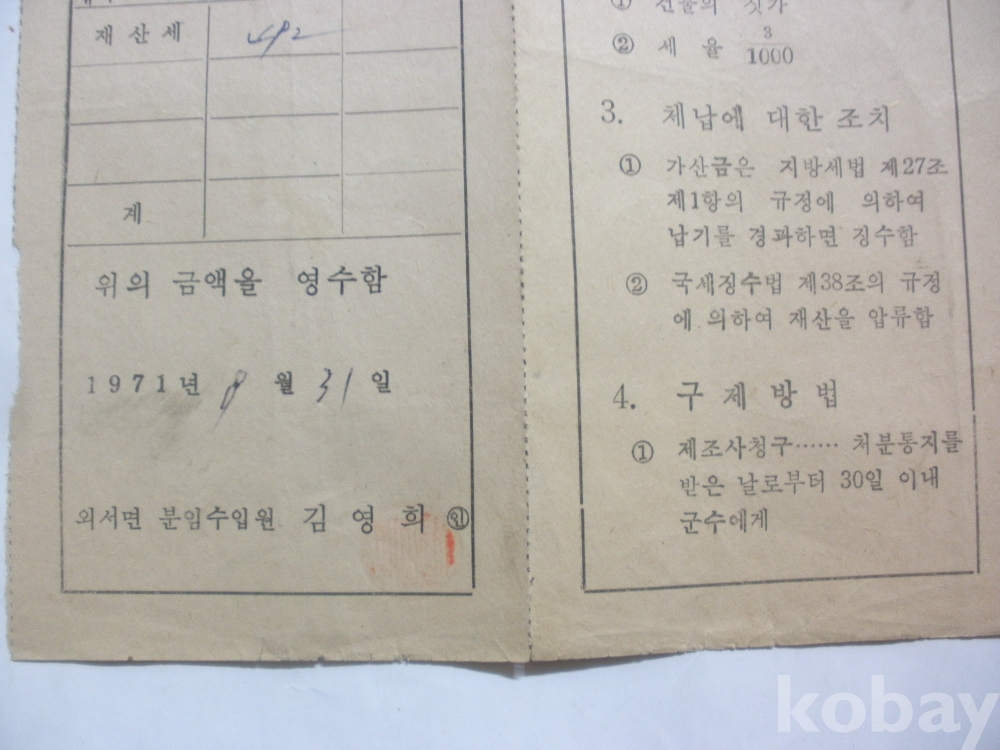 재산세 492
계
위의 금액을 영수함
1971년 8월 31일
외서면 분임수입원 김영희 ㊞
① 건물의 싯가
② 세율 3/1000
3. 체납에 대한 조치
① 가산금은 지방세법 제27조
제1항의 규정에 의하여
납기를 경과하면 징수함
② 국세징수법 제38조의 규정
에 의하여 재산을 압류함
4. 구제방법
① 제조사청구…… 처분통지를
받은 날로부터 30일 이내
군수에게
kobay